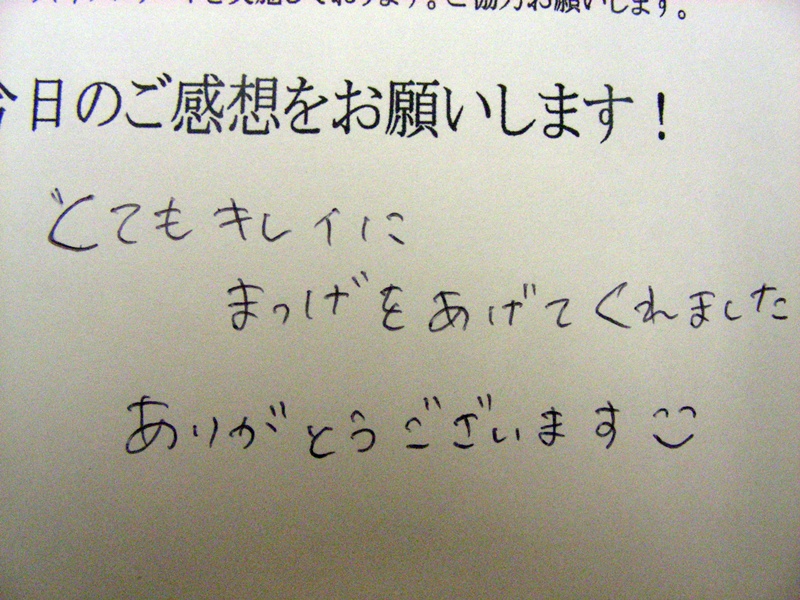 を実施しております。ご協力お願いします。
今日のご感想をお願いします！
とてもキレイに
まつげをあげてくれました
ありがとうございます